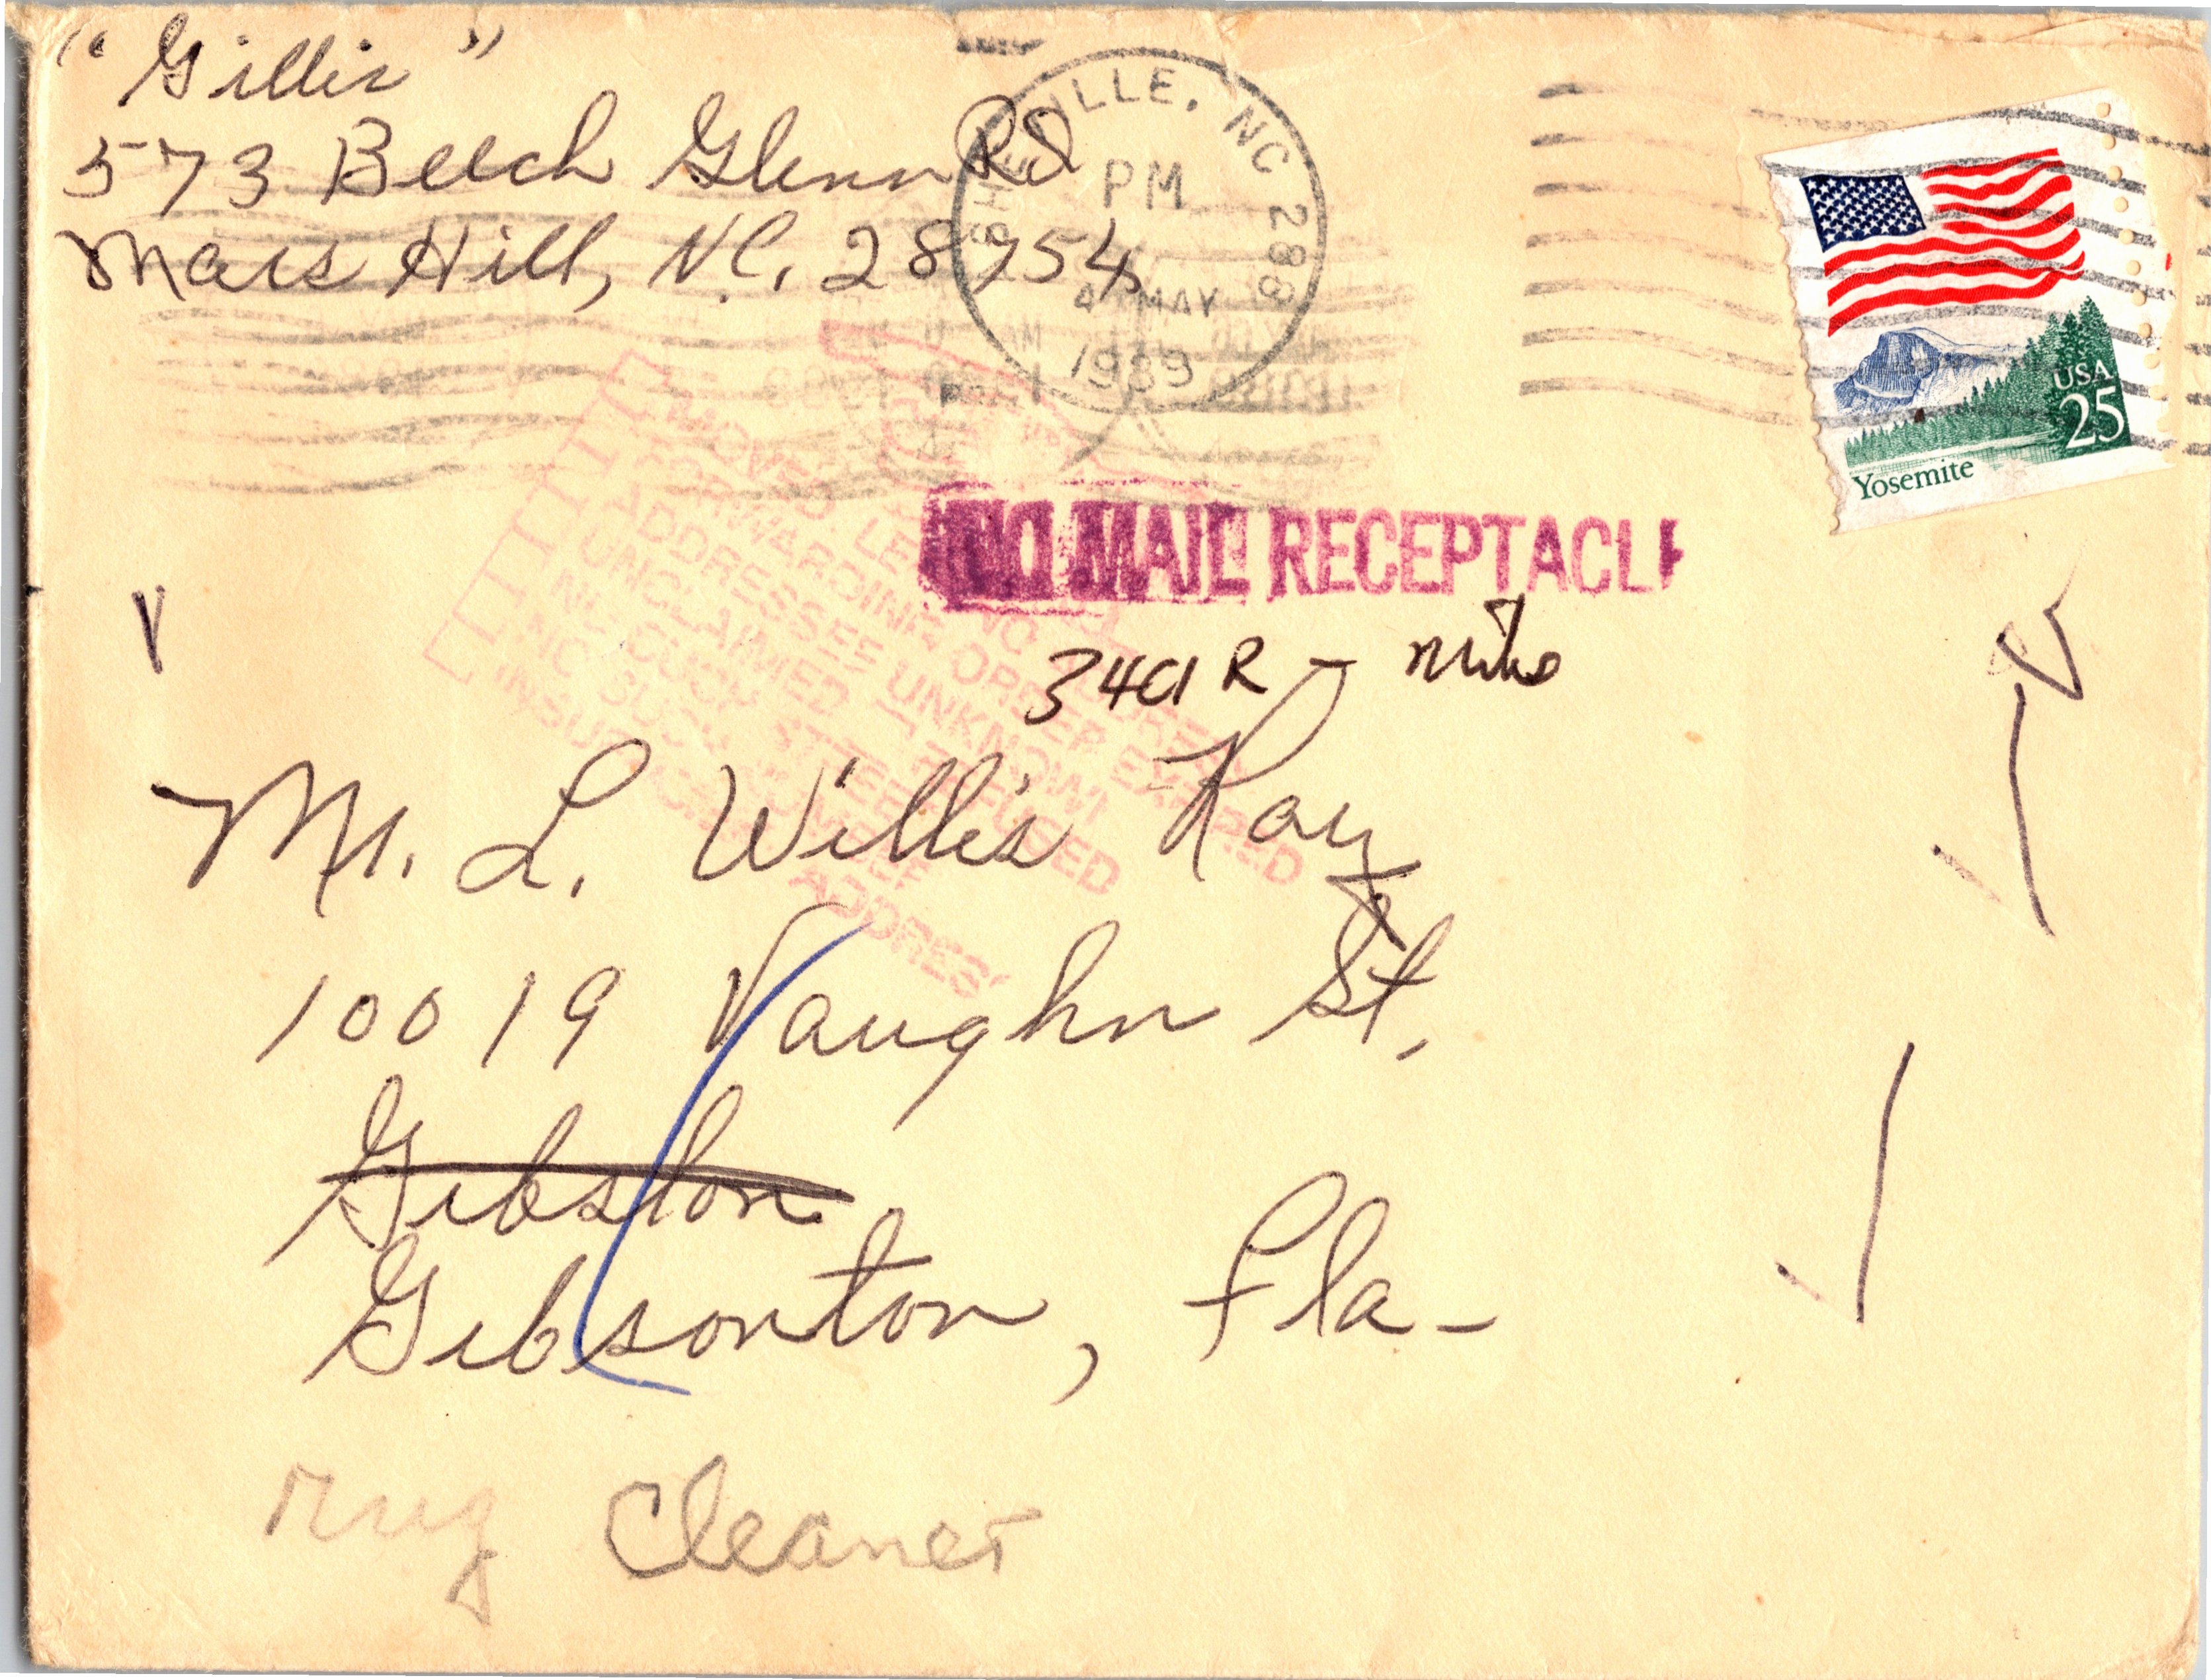 "Gillis"
573 Beech Glenn Rd
Mars Hill, N.C. 28754
SHEVILLE, NC 288
PM
4 MAY
1989
USA
25
Yosemite
NO MAIL RECEPTACLE
MOVED, LE
FORWARDING ORDER EXPIRED
ADDRESSEE UNKNOWN
UNCLAIMED REFUSED
NO SUCH STREET
NO SUCH NUMBER
INSUFFICIENT ADDRESS
Mr. L. Willis Ray
10019 Vaughn St.
Gibston
Gibsonton, Fla-
rug Cleaner